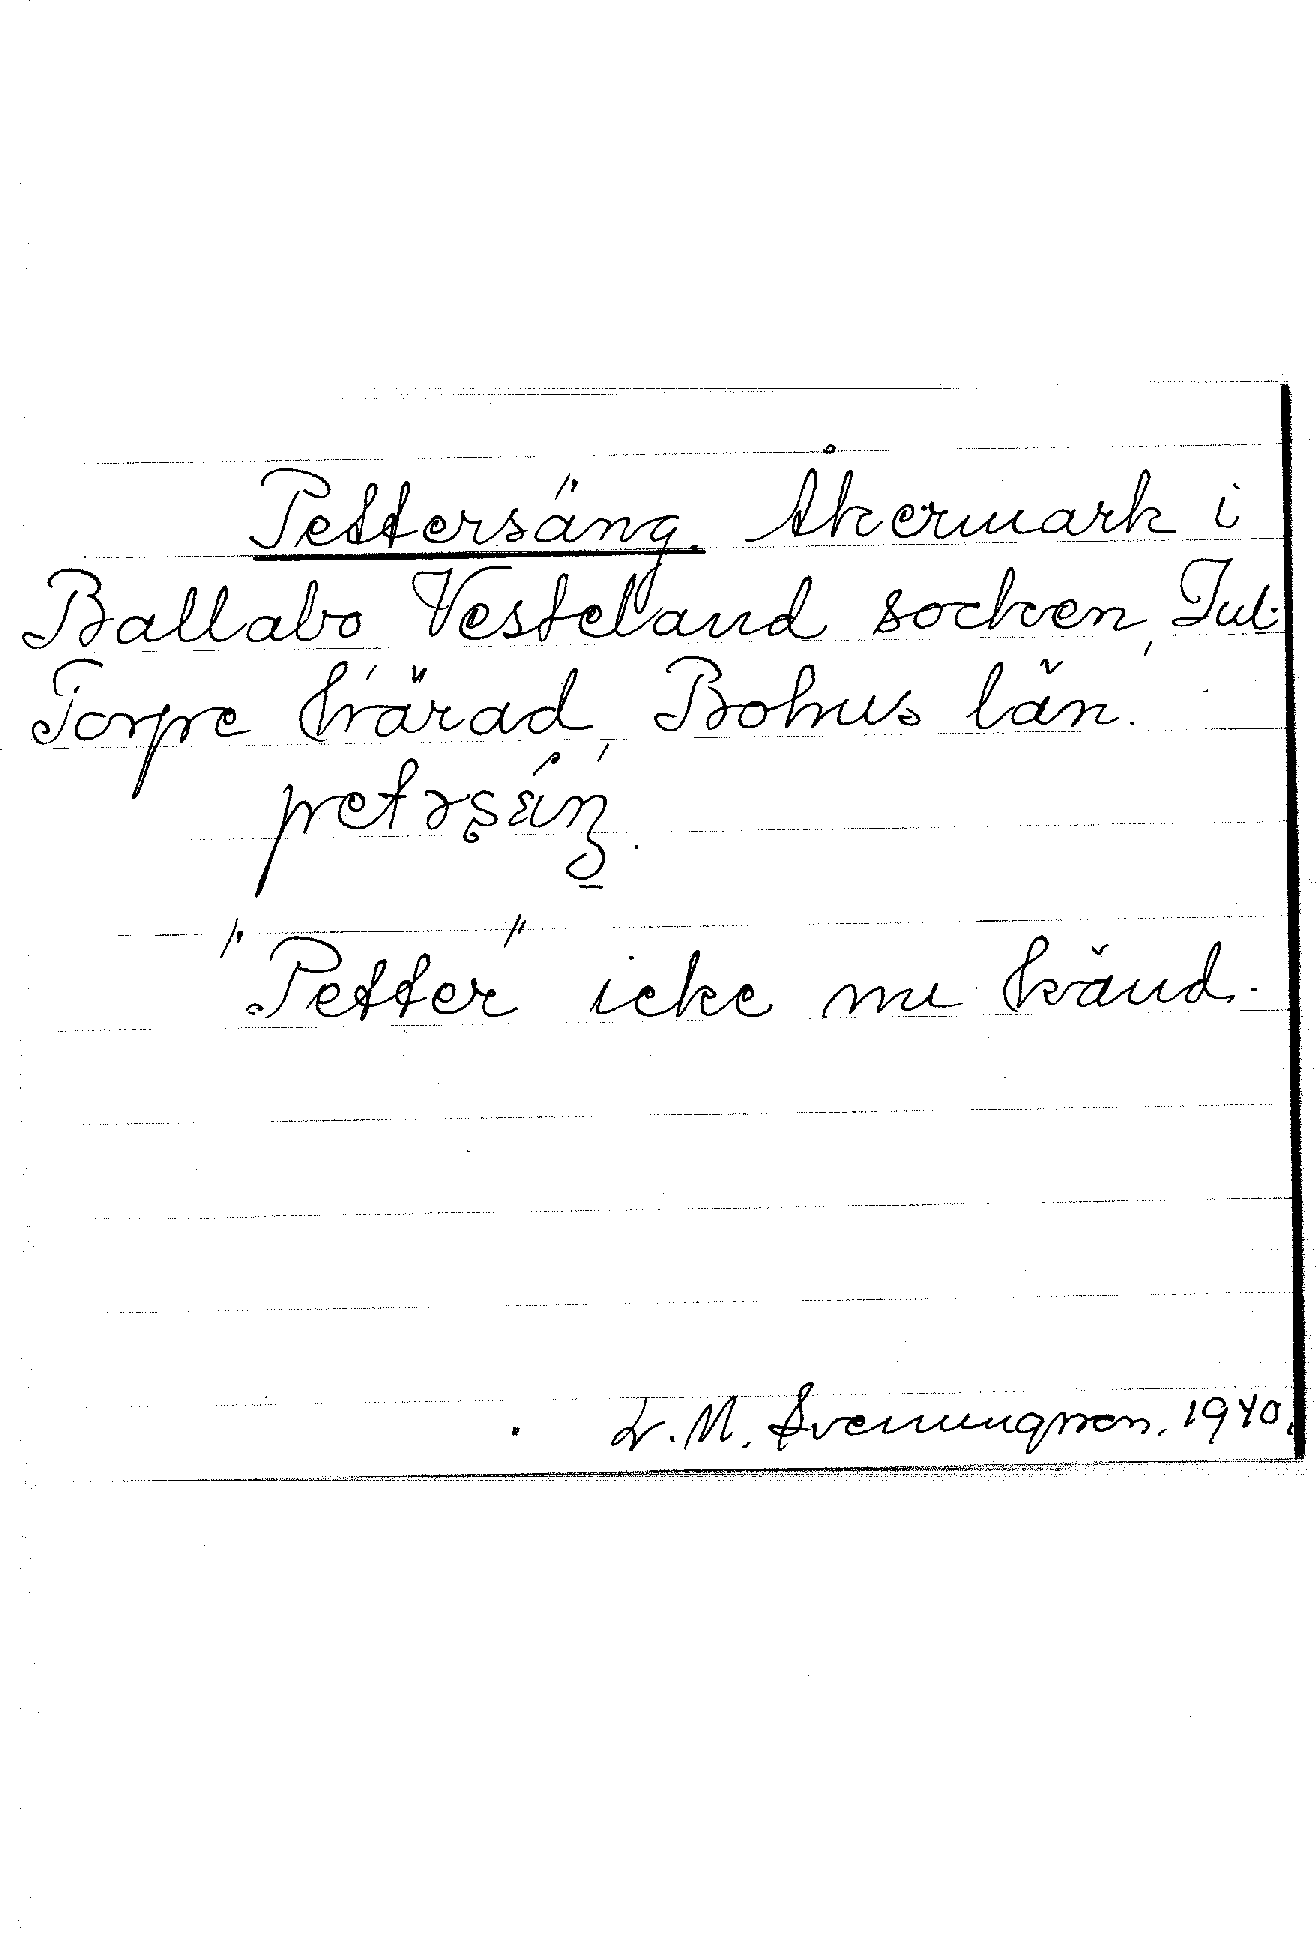 Pettersäng. Åkermark i
Ballabo Vesteland socken, Inl.
Torpe härad, Bohus län.
"Petter" icke nu känd.
L. M. Svenungsson. 1940.